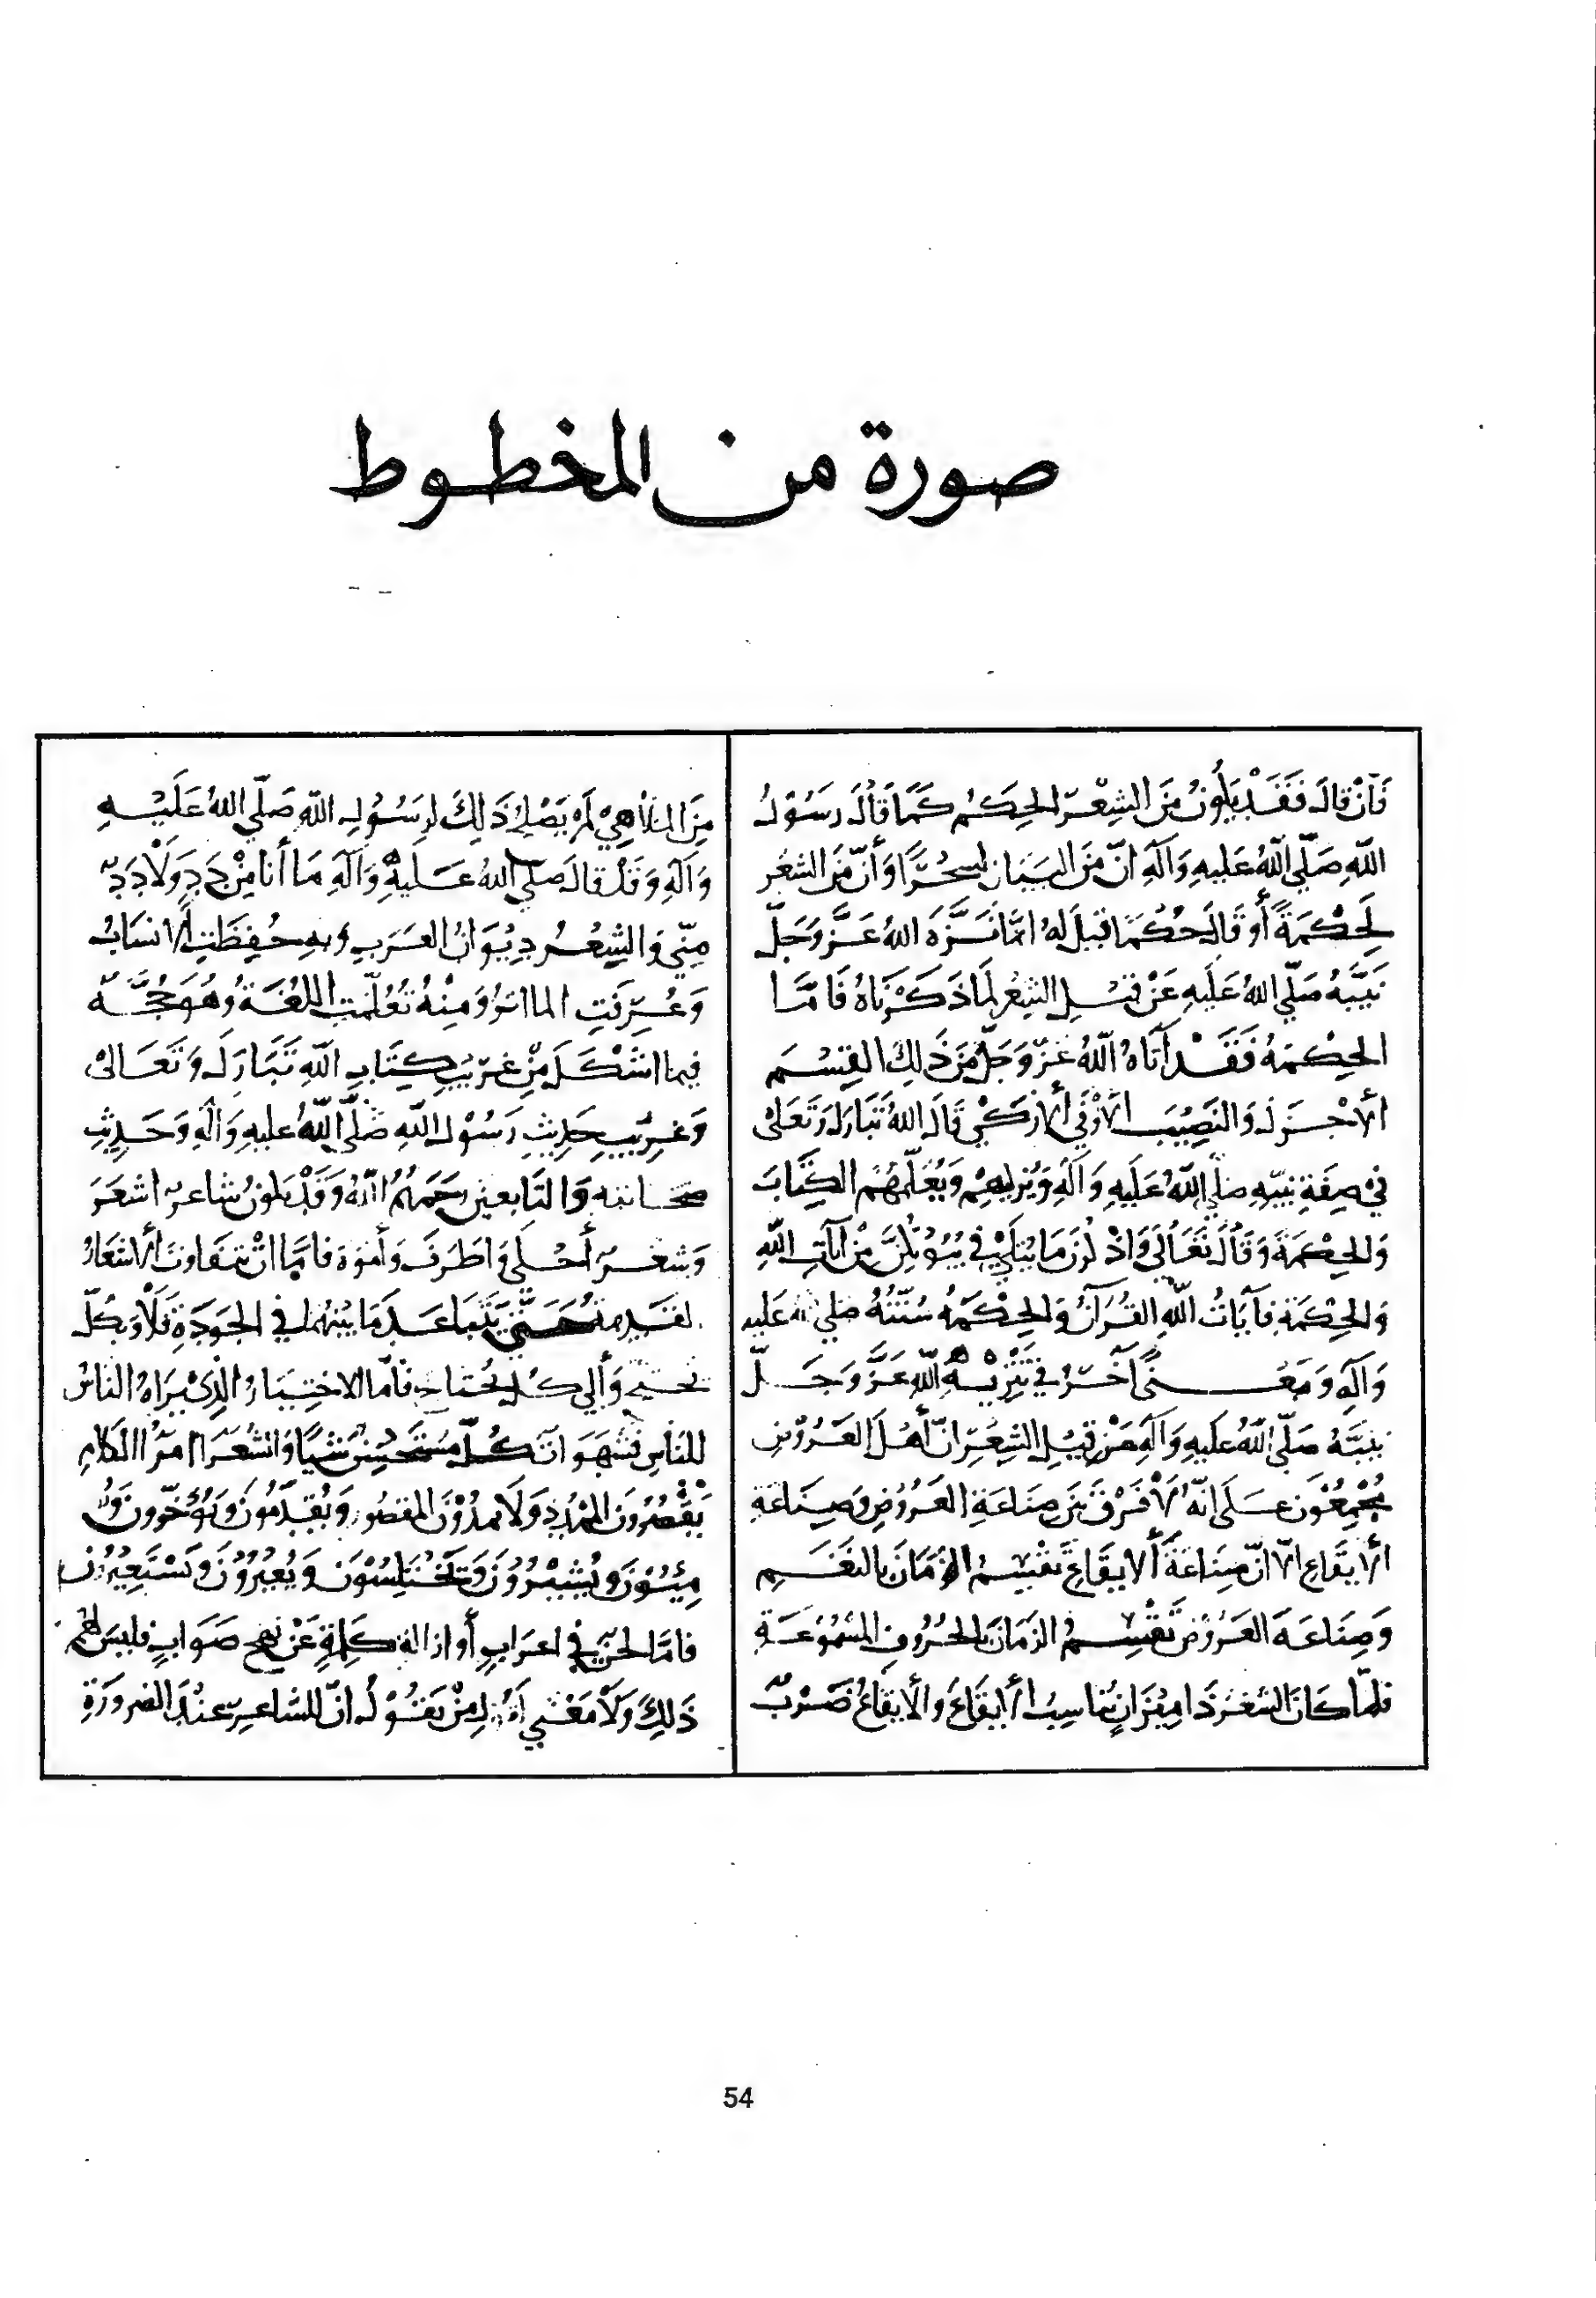 صورة من المخطوط
فَإنْ قالَ فَقَدْ يَكُونُ مِنَ الشِّعْرِ الحِكَمُ كَمَا قَالَ رَسُوْلُ
اللهِ صَلّى اللهُ عَلَيهِ وَآلهِ انّ مِنَ البَيَان لسِحْرًا وَأنّ مِنَ الشعْر
لَحِكْمَةً أو قَالَ حُكْمًا قيلَ لهُ انما نَزَّهَ اللهُ عَزَّ وَجَلّ
نَبِيَّهُ صَلّي اللهُ عَلَيهِ عَنْ قيْلِ الشِعْر لِمَا ذَكَرْنَاهُ فَامّا
الحِكْمَةُ فَقَدْ آتَاهُ اللهُ عَزّ وَجَلّ مِنَ ذَلِكَ القِسْمَ
الأجْزَلَ وَالنَصِيْبَ الأوْفَي الأزكَي قَالَ اللهُ تَبَارَكَ وَتَعَالىْ
فيْ صِفَةِ نبِيّهِ صَلّي اللهُ عَلَيهِ وَآلهِ وَيُزكيهِمْ وَيُعَلّمُهُم الكِتَابَ
وَالحِكْمَةَ وَقَالَ تَعَالَي وَاذْكُرْنَ مَا يُتْلَي فِي بُيُوْتِكُنَّ مِنْ آيَاتِ اللهِ
وَالحِكْمَةِ فآيَاتُ اللهِ القُرْآنُ وَالحِكْمَةُ سُنّتُهُ صلي الله عَليه
وَآلهِ وَمَعْنىً آخَرُ في تَنْزِيْهِ اللهِ عَزَّ وَجَلّ
نبِيَّهُ صَلّي اللهُ عَليهِ وَآلهِ عَنْ قِيْلِ الشِعْرِ انّ أهْلَ العَرُوْضِ
مُجْمِعُوْنَ عَلَى انّهُ لأ فَرْقَ بَيْنَ صِنَاعَةِ العَرُوْضِ وَصِنَاعَةِ
الأيقَاعِ الاّ انّ صِنَاعَةَ الايقَاعِ تَقْسِيْمُ الزمَانَ بالنَغَمِ
وَصِنَاعَةَ العَرُوْضِ تَقْسِيْمُ الزمَانَ بالحُرُوفِ المَسْمُوْعَةِ
فلمّا كانَ الشعْرُ ذَا مِيْزَانٍ يُنَاسِبُ الأيقَاعَ والأيقَاعُ ضَرْبٌ
مِنَ المَلأَهِيْ لَمْ يَصْلُحْ ذَلِكَ لِرَسُوُلِ اللهِ صَلّي اللهُ عَلَيْهِ
وَآلهِ وَقَدْ قالَ صَلي اللهُ عَلَيْهِ وَآلهِ مَا أنا مِنْ دَدٍ وَلأدَدٌ
مِنّي وَالشِعْرُ دِيْوَانُ العَرَبِ وَبهِ حُفِظَتِ الأنْسَابُ
وَعُرِفَتِ الماثرُ وَمِنْهُ تُعُلّمَتِ اللغَةُ وَهُوَ حُجَّةٌ
فيما اشْكَلَ مِنْ غريْبِ كِتَابِ اللهِ تَبَارَكَ وَتَعَالىْ
وَغرِيْبِ حَدِيْثِ رَسُوْلِ اللهِ صَلّي اللهُ عليهِ وَآلهِ وَحَدِيْثِ
صَحَابتهِ وَالتَابعينَ رحَمَهُمُ اللهُ وَقَدْ يَكونُ شاعرٌ اشعَرَ
وَشعْرٌ أحْلَى وَاطرَفَ فامَّا انْ تتفَاوتَ الأشعَارُ
القَدِيمةُ حَتّى يَتَبَاعَدَ مَا بَيْنهُما في الجَوْدَةِ فَلأ وَبكلّ
يُحتَجُّ وَألي كُلٍ يُحتَاجُ فأمّا الاختِيَارُ الّذِىْ يَرَاهُ الناسُ
للنَاسِ فشَهَوَاتٌ كُلٌّ مُسْتَحْسِنٌ شَيأً وَالشُعَرَاءُ امَرَاءُ الكَلامِ
يَقْصُرُوْنَ المَمْدُوْدَ وَلَا يَمدُّوْنَ المَقصُورَ وَيُقَدّمُونَ وَيُؤَخّرونَ وَيُوْ
مِئُوْنَ وَيُشِيْرُوْنَ وَيَخْتَلِسُوْنَ وَيُعِيْرُوْنَ وَيَسْتَعِيْرُوْنَ
فامَّا لحنٌ في اعرَابٍ أو ازالةِ كَلِمَةٍ عَنْ نهجِ صَوَابٍ فليسَ لهُمْ
ذَلِكَ وَلَأ مَعْني لِمَنْ يَقُوْلُ انّ للشاعرِ عنْدَ الضرورَةِ
54